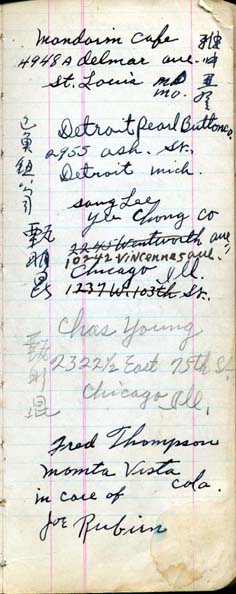 Mandarin Cafe
4948A delmar ave.
St. Louis
mo.
Detroit Pearl Button Co.
2955 ash. St.
Detroit mich.
sang Lee
Yee Chong Co
2245 Wentworth ave
10242 Vincennes ave.
Chicago Ill.
1237 W. 103th St.
Chas Young
2322½ East 75th St
Chicago Ill.
Fred Thompson
Momta Vista
Cola.
in care of
Joe Rubin